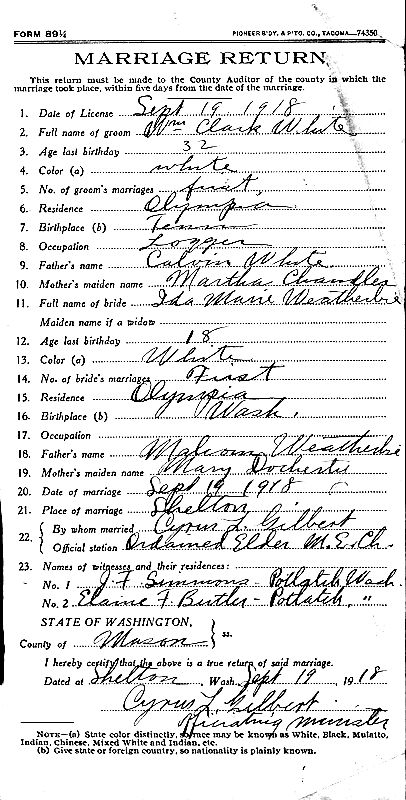 FORM 89½ PIONEER B'DY. & P'T'G. CO., TACOMA—74350
MARRIAGE RETURN
This return must be made to the County Auditor of the county in which the
marriage took place, within five days from the date of the marriage.
1. Date of License Sept 19, 1918
2. Full name of groom Wm Clark White
3. Age last birthday 32
4. Color (a) white
5. No. of groom's marriages first
6. Residence Olympia
7. Birthplace (b) Tenn
8. Occupation Logger
9. Father's name Calvin White
10. Mother's maiden name Martha Chandler
11. Full name of bride Ida Marie Weatherbie
Maiden name if a widow
12. Age last birthday 18
13. Color (a) White
14. No. of bride's marriages First
15. Residence Olympia
16. Birthplace (b) Wash.
17. Occupation
18. Father's name Malcom Weatherbie
19. Mother's maiden name Mary
20. Date of marriage Sept 19 1918
21. Place of marriage Shelton
22. { By whom married Cyrus L. Gilbert
Official station Ordained Elder M.E. Ch.
23. Names of witnesses and their residences:
No. 1 J F Simmons - Potlatch, Wash.
No. 2 Elaine F Butler - Potlatch, "
STATE OF WASHINGTON, } ss.
County of Mason
I hereby certify that the above is a true return of said marriage.
Dated at Shelton, Wash. Sept 19, 1918
Cyrus L Gilbert
Officiating Minister
NOTE—(a) State color distinctly, so race may be known as White, Black, Mulatto,
Indian, Chinese, Mixed White and Indian, etc.
(b) Give state or foreign country, so nationality is plainly known.